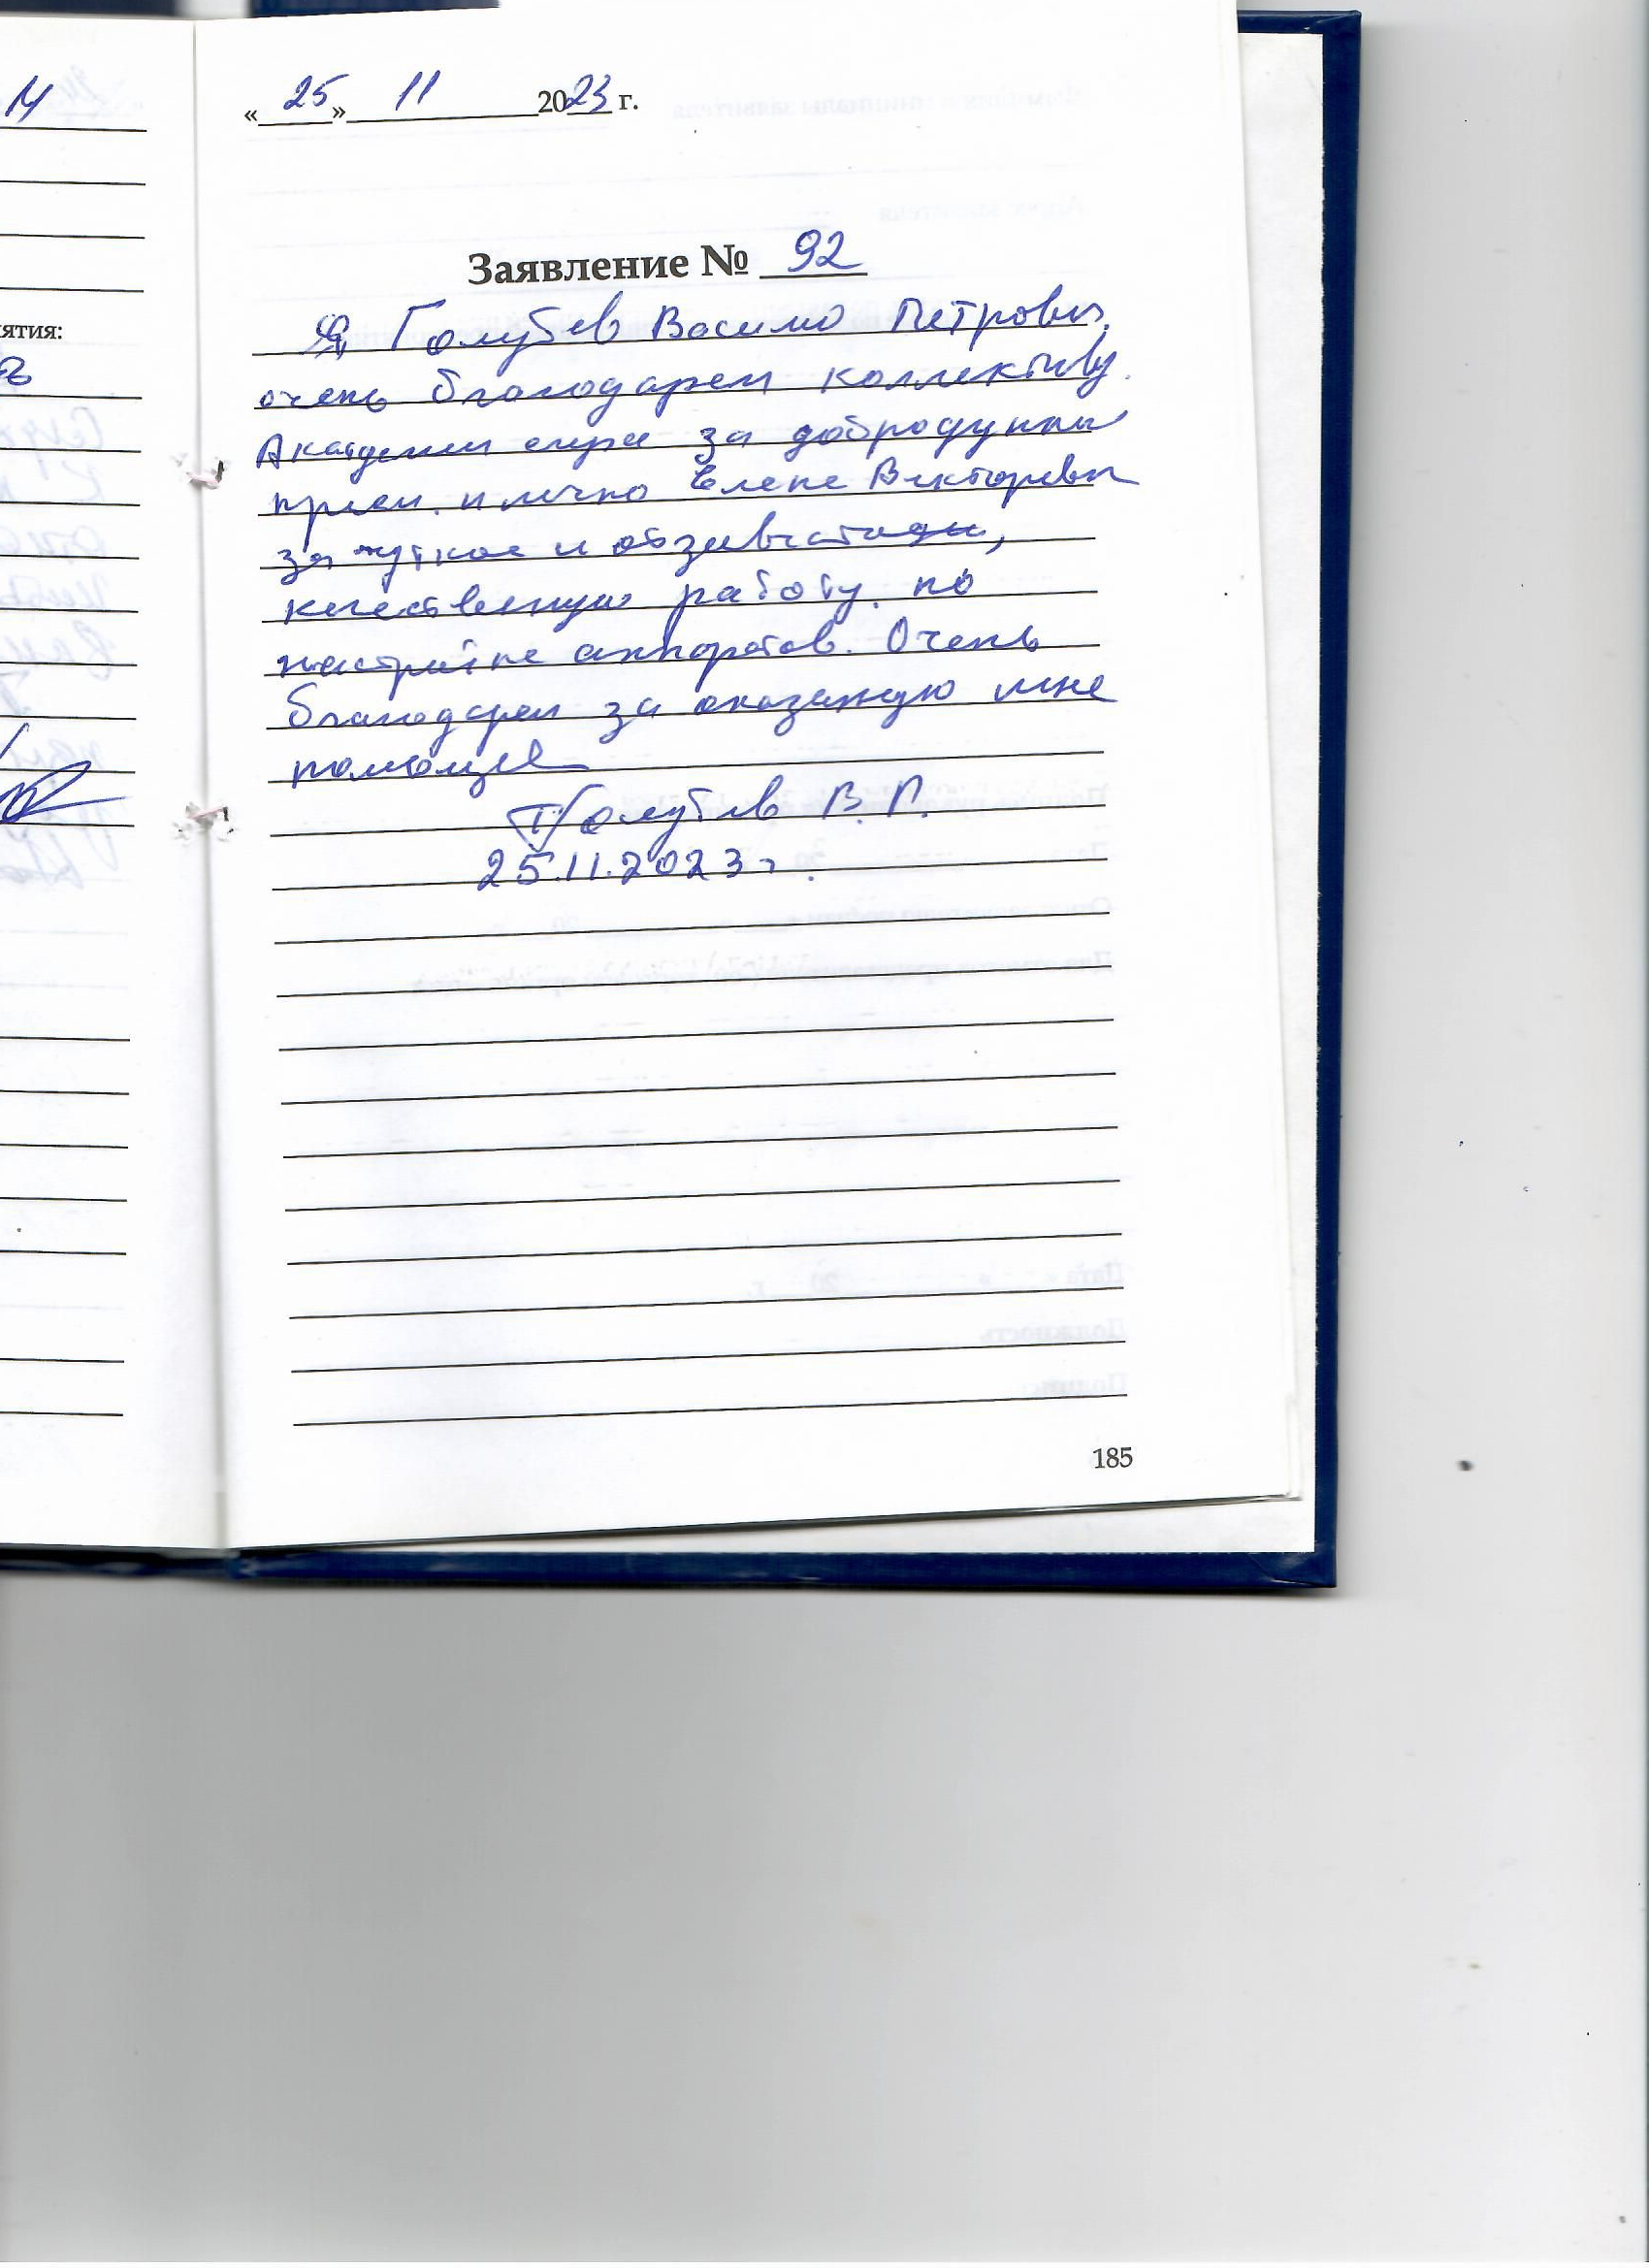 «25» 11 2023 г.
Заявление № 92
Я, Голубев Василий Петрович,
очень благодарен коллективу
Академии слуха за добродушный
прием. и лично Елене Викторовне
за чуткое и
качественную работу по
настройке аппаратов. Очень
благодарен за оказанную мне
помощь
Голубев В. П.
25.11.2023 г.
185
ятия: